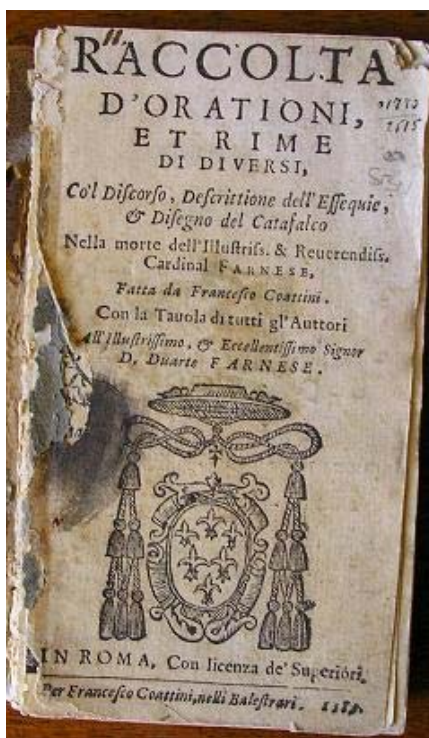 RACCOLTA
D'ORATIONI,
ET RIME
DI DIVERSI,
Co'l Discorso, Descrittione dell'Essequie,
& Disegno del Catafalco
Nella morte dell'Illustriss. & Reuerendiss.
Cardinal FARNESE,
Fatta da Francesco Coattini.
Con la Tauola di tutti gl'Auttori
All'Illustrissimo, & Eccellentissimo Signor
D. Duarte FARNESE.
IN ROMA, Con licenza de' Superiori.
Per Francesco Coattini, nelli Balestrari.